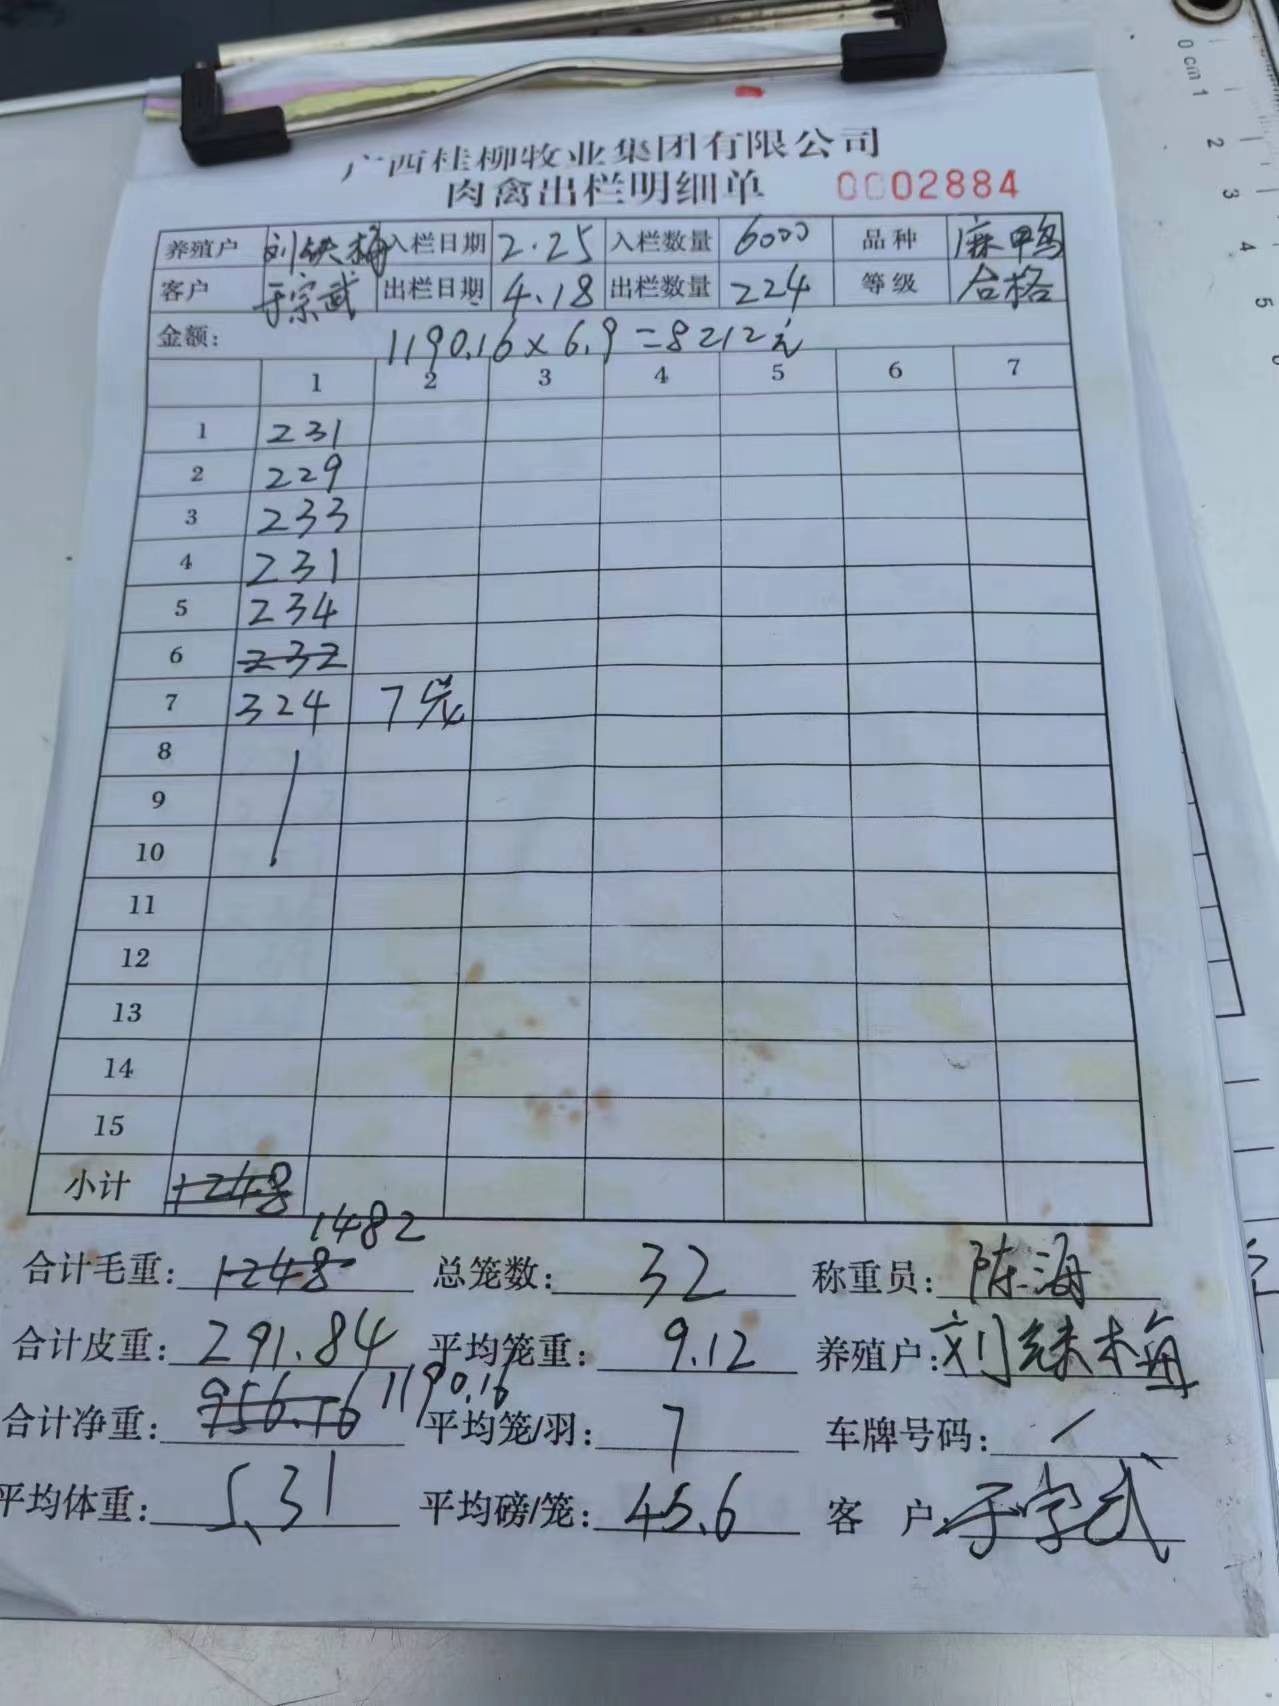 广西桂柳牧业集团有限公司
肉禽出栏明细单 0002884
养殖户 刘铁梅 入栏日期 2.25 入栏数量 6000 品种 麻鸭
客户 于宗武 出栏日期 4.18 出栏数量 224 等级 合格
金额: 1190.16×6.9=8212元
1 2 3 4 5 6 7
1 231
2 229
3 233
4 231
5 234
6 232
7 324 7笼
8
9
10
11
12
13
14
15
小计 1248
1482
合计毛重: 1248 总笼数: 32 称重员: 陈海
合计皮重: 291.84 平均笼重: 9.12 养殖户: 刘铁梅
合计净重: 956.16 1190.16 平均笼/羽: 7 车牌号码: /
平均体重: 5.31 平均磅/笼: 45.6 客 户: 于宗武
0 cm 1
2
3
4
5